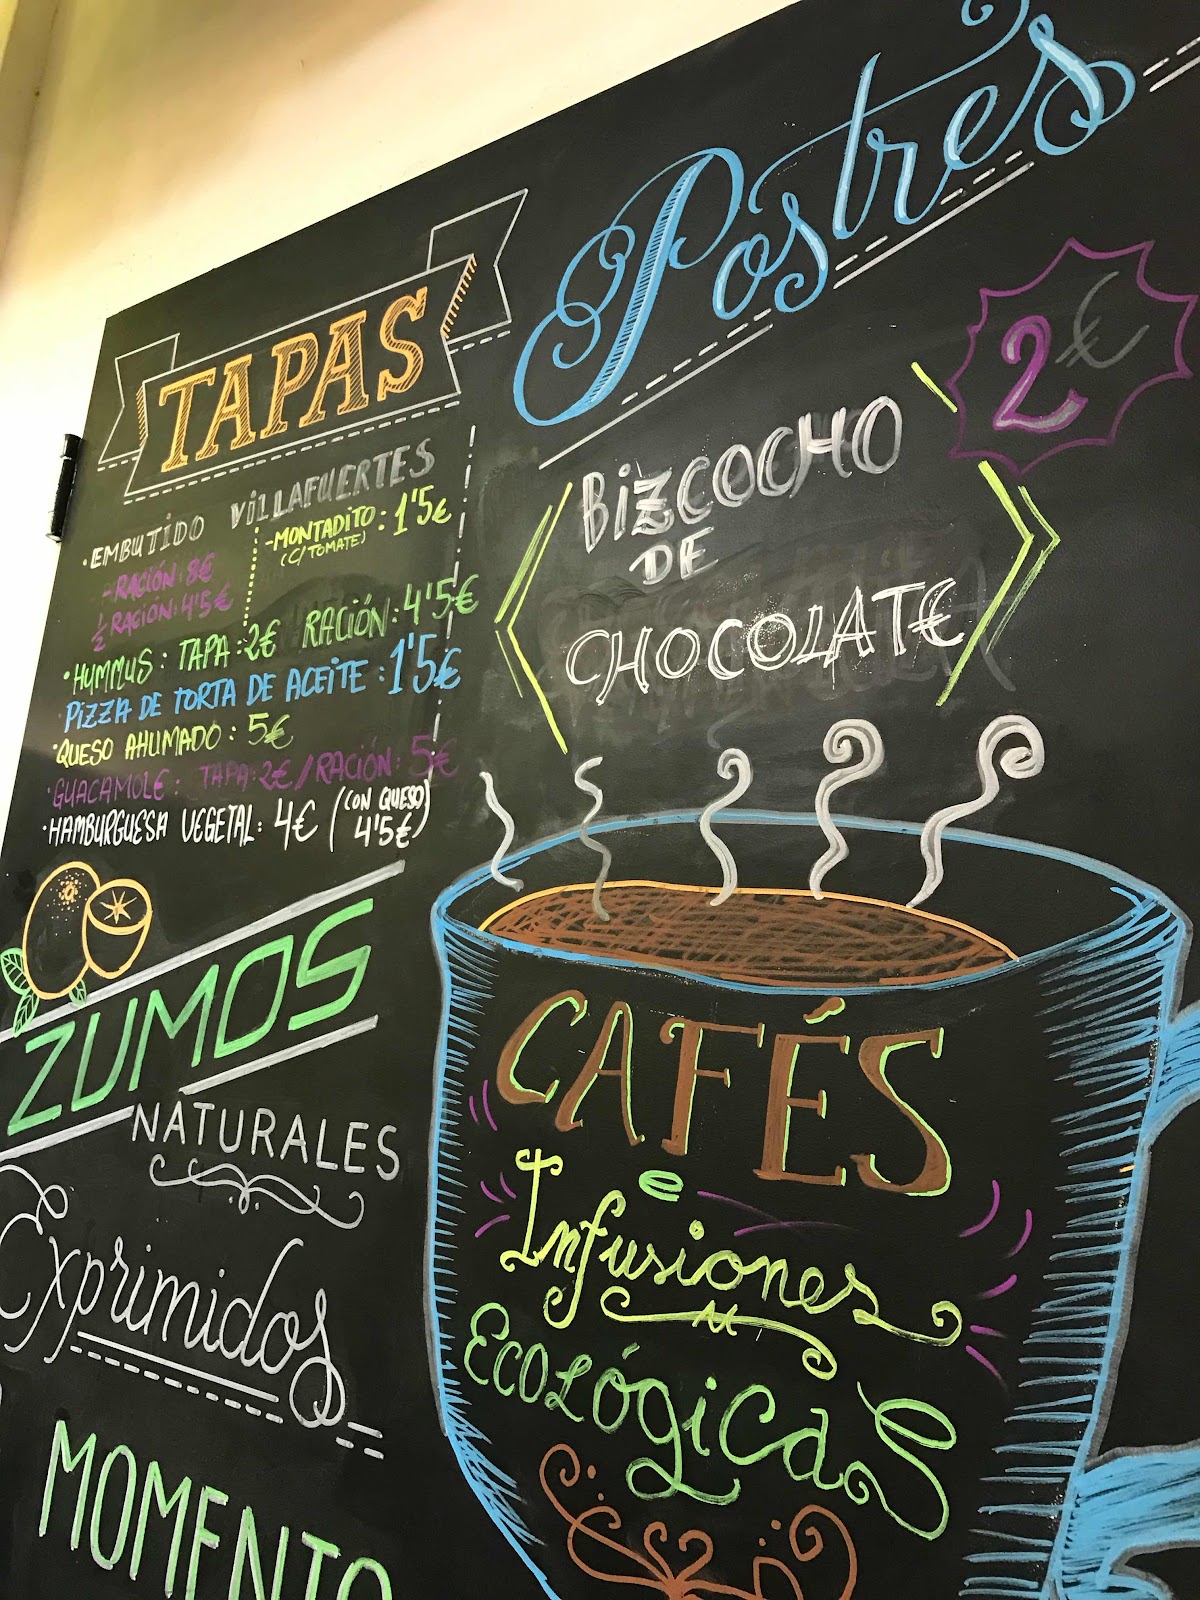 TAPAS
• EMBUTIDO VILLAFUERTES
- RACIÓN: 8€
½ RACION: 4'5€
- MONTADITO: 1'5€
(C/TOMATE)
• HUMMUS: TAPA: 2€ RACIÓN: 4'5€
PIZZA DE TORTA DE ACEITE: 1'5€
• QUESO AHUMADO: 5€
• GUACAMOLE: TAPA: 2€/RACIÓN: 5€
• HAMBURGUESA VEGETAL: 4€ (CON QUESO
4'5€)
Postres
2€
BIZCOCHO
DE
CHOCOLATE
ZUMOS
NATURALES
Exprimidos
MOMENTO
CAFÉS
e
Infusiones
ECOLÓGICAS